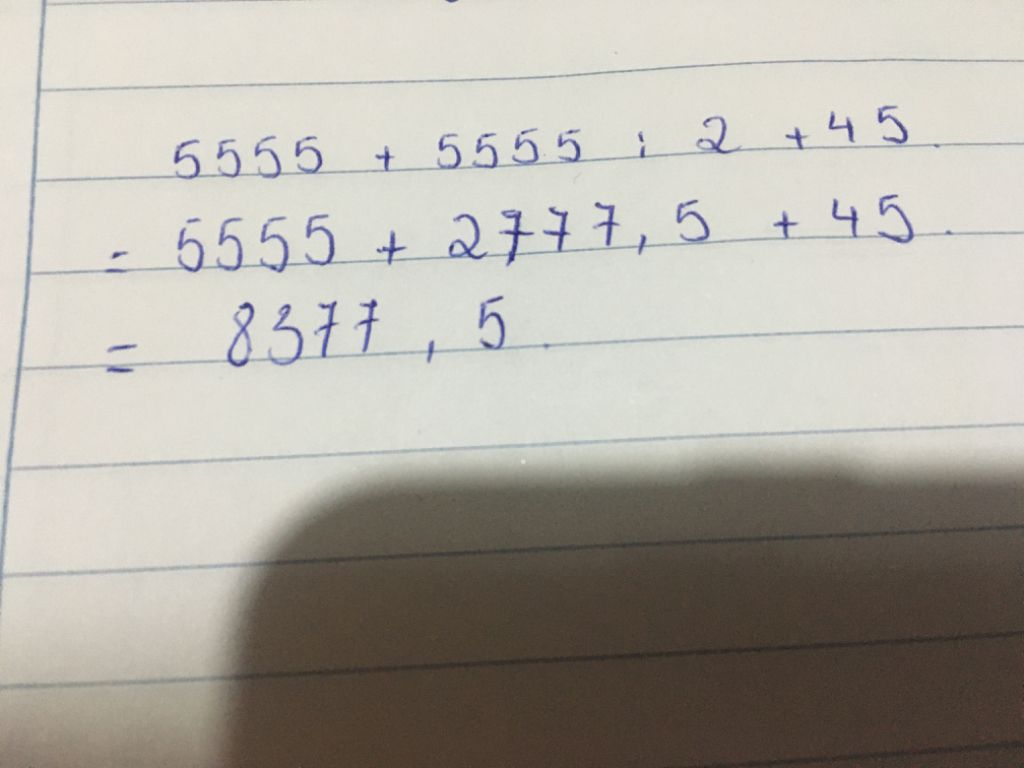 5555 + 5555 : 2 + 45.
= 5555 + 2777,5 + 45.
= 8377,5.